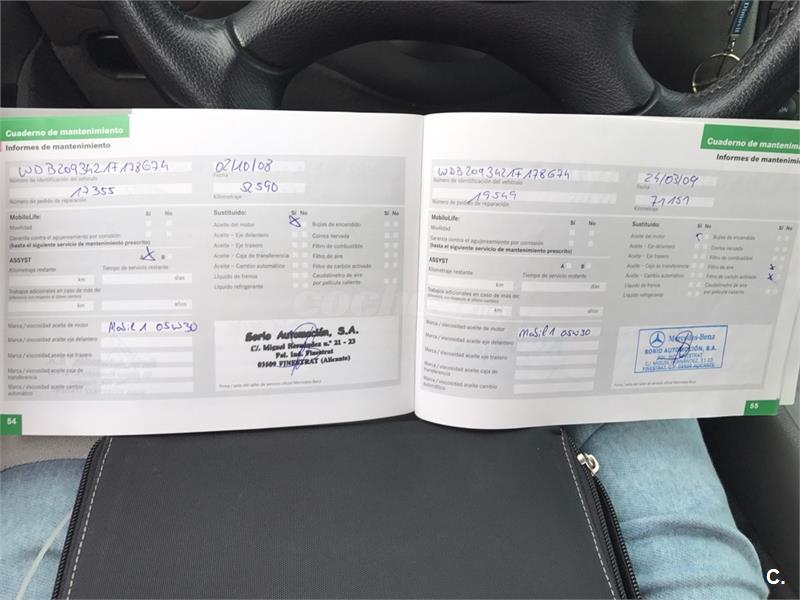 Cuaderno de mantenimiento
Informes de mantenimiento
WDB2093421T178674
Número de identificación del vehículo
02/10/08
Fecha
17355
Número de pedido de reparación
52590
Kilometraje
MobiloLife:
Sí No
Movilidad
Garantía contra el agujereamiento por corrosión
(hasta el siguiente servicio de mantenimiento prescrito)
ASSYST
B
Kilometraje restante
Tiempo de servicio restante
km
días
Trabajos adicionales en caso de más de:
km
años
Sustituido:
Sí No
Sí No
Aceite del motor
Bujías de encendido
Aceite – Eje delantero
Correa nervada
Aceite – Eje trasero
Filtro de combustible
Aceite – Caja de transferencia
Filtro de aire
Aceite – Cambio automático
Filtro de carbón activado
Líquido de frenos
Caudalímetro de aire
por película caliente
Líquido refrigerante
Marca / viscosidad aceite de motor
Mobil 1 05W30
Marca / viscosidad aceite eje delantero
Marca / viscosidad aceite eje trasero
Marca / viscosidad aceite caja de
transferencia
Marca / viscosidad aceite cambio
automático
Sorio Automoción, S.A.
C/. Miguel Hernández n.º 21 - 23
Pol. Ind. Finestrat
03509 FINESTRAT (Alicante)
Firma / sello del taller de servicio oficial Mercedes-Benz
54
Cuaderno de mantenim
Informes de mantenim
WDB2093421T178674
Número de identificación del vehículo
24/03/09
Fecha
19549
Número de pedido de reparación
71151
Kilometraje
MobiloLife:
Sí No
Movilidad
Garantía contra el agujereamiento por corrosión
(hasta el siguiente servicio de mantenimiento prescrito)
ASSYST
A B
Kilometraje restante
Tiempo de servicio restante
km
días
Trabajos adicionales en caso de más de:
km
años
Sustituido:
Sí No
Sí No
Aceite del motor
Bujías de encendido
Aceite – Eje delantero
Correa nervada
Aceite – Eje trasero
Filtro de combustible
Aceite – Caja de transferencia
Filtro de aire
Aceite – Cambio automático
Filtro de carbón activado
Líquido de frenos
Caudalímetro de aire
por película caliente
Líquido refrigerante
Marca / viscosidad aceite de motor
Mobil 1 05W30
Marca / viscosidad aceite eje delantero
Marca / viscosidad aceite eje trasero
Marca / viscosidad aceite caja de
transferencia
Marca / viscosidad aceite cambio
automático
Mercedes-Benz
SORIO AUTOMOCIÓN, S.A.
C/ MIGUEL HERNÁNDEZ, 21-23
FINESTRAT
ALICANTE
Firma / sello del taller de servicio oficial Mercedes-Benz
55
C.